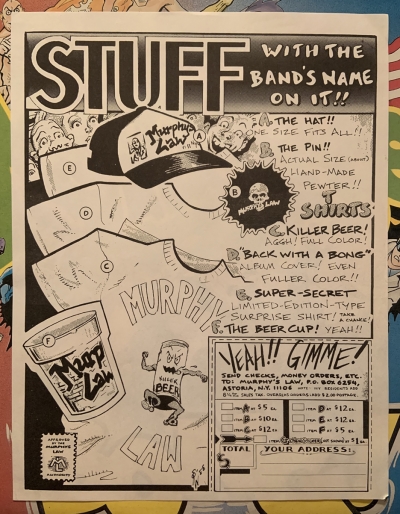 STUFF
WITH THE
BAND'S NAME
ON IT!!
Murphy's
Law
A
A. THE HAT!!
ONE SIZE FITS ALL!!
B. THE PIN!!
ACTUAL SIZE (ABOUT)
HAND-MADE
PEWTER!!
B
MURPHY'S LAW
T
SHIRTS
E
D
C
C. KILLER BEER!
AGGH! FULL COLOR!
D. "BACK WITH A BONG"
ALBUM COVER! EVEN
FULLER COLOR!!
E. SUPER-SECRET
LIMITED-EDITION-TYPE
SURPRISE SHIRT! TAKE
A CHANCE!
F. THE BEER CUP! YEAH!!
MURPHY
LAW
KILLER
BEER
F
Murp
Law
APPROVED
BY THE
MURPHYS
LAW
YEAH!! GIMME!
SEND CHECKS, MONEY ORDERS, ETC.
TO: MURPHY'S LAW, P.O. BOX 6254,
ASTORIA, N.Y. 11106
SALES TAX. OVERSEAS ORDERS, ADD $2.00 POSTAGE.
ITEM A AT $5 EA.
ITEM B AT $10 EA.
ITEM C AT $12 EA.
ITEM D AT $12 EA.
ITEM E AT $12 EA.
ITEM F AT $5 EA.
NOT SHOWN AT $1 EA.
TOTAL
$
YOUR ADDRESS: